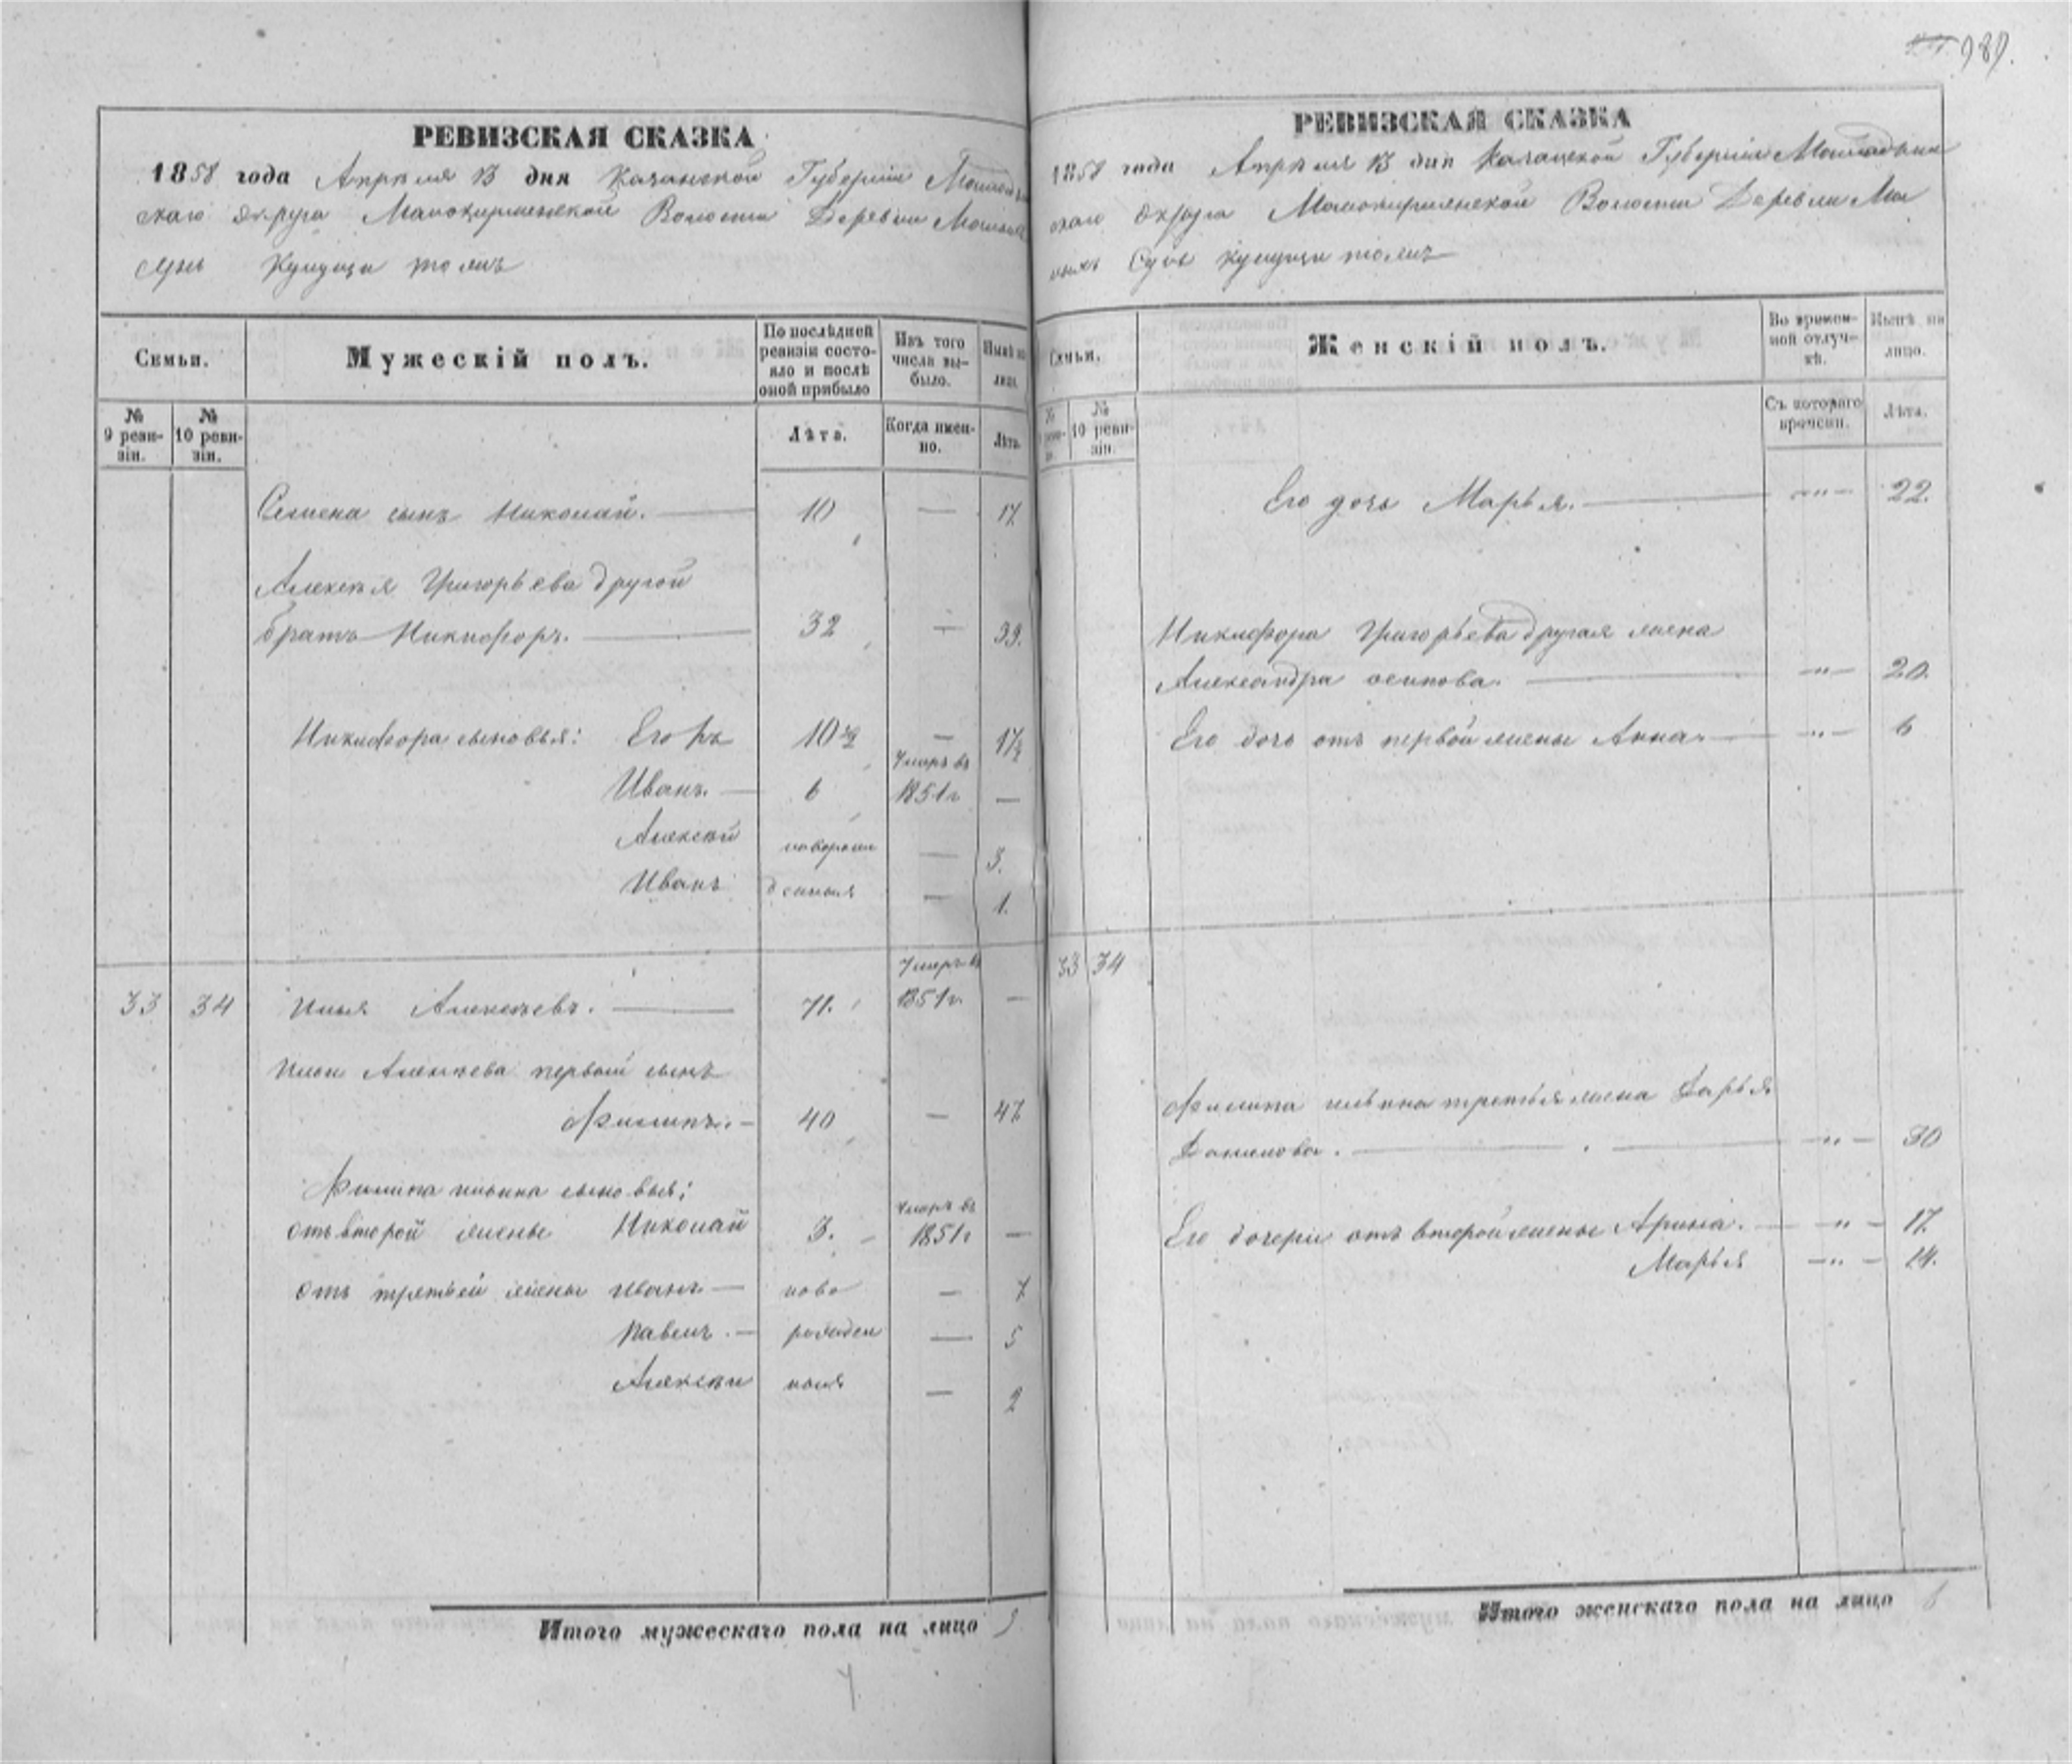 989.
РЕВИЗСКАЯ СКАЗКА
1858 года Апрѣля 13 дня Казанской Губернiи
скаго округа Малокирменской Волости Деревни
Семьи.
Мужескiй полъ.
По послѣдней ревизiи состояло и послѣ оной прибыло
Изъ того числа выбыло.
Нынѣ на лицо.
№ 9 ревизiи.
№ 10 ревизiи.
Лѣта.
Когда именно.
Лѣта.
Семена сынъ Николай. 10 — 17
Алексѣя Григорьева другой
братъ Никифоръ. 32 — 39.
Никифора сыновья: Егоръ 10½ — 17½
Иванъ. 6 Умеръ въ 1851г —
Алексѣй новорож — 3.
Иванъ денныя — 1.
33 34 Илья Алексѣевъ. 71. Умеръ въ 1851г. —
Ильи Алексѣева первый сынъ
Филипъ. 40 — 47
Филипа ильина сыновья:
отъ второй жены Николай 3. Умеръ въ 1851г —
отъ третьей жены Иванъ — ново — 7
Павелъ. — рожден — 5
Алексѣи ныя — 2
Итого мужескаго пола на лицо 9
РЕВИЗСКАЯ СКАЗКА
1858 года Апрѣля 13 дня Казанской Губернiи
скаго округа Малокирменской Волости Деревни
Семьи.
Женскiй полъ.
Во временной отлучкѣ.
Нынѣ на лицо.
№ 10 ревизiи.
Съ котораго времени.
Лѣта.
Его дочь Марья. — " — 22.
Никифора Григорьева другая жена
Александра осипова. — " — 20.
Его дочь отъ первой жены Анна. — " — 6
33 34
Филипа ильина третья жена Дарья
Данилова. — " — 30
Его дочери отъ второй жены Арина. — " — 17
Марья — " — 14.
Итого женскаго пола на лицо